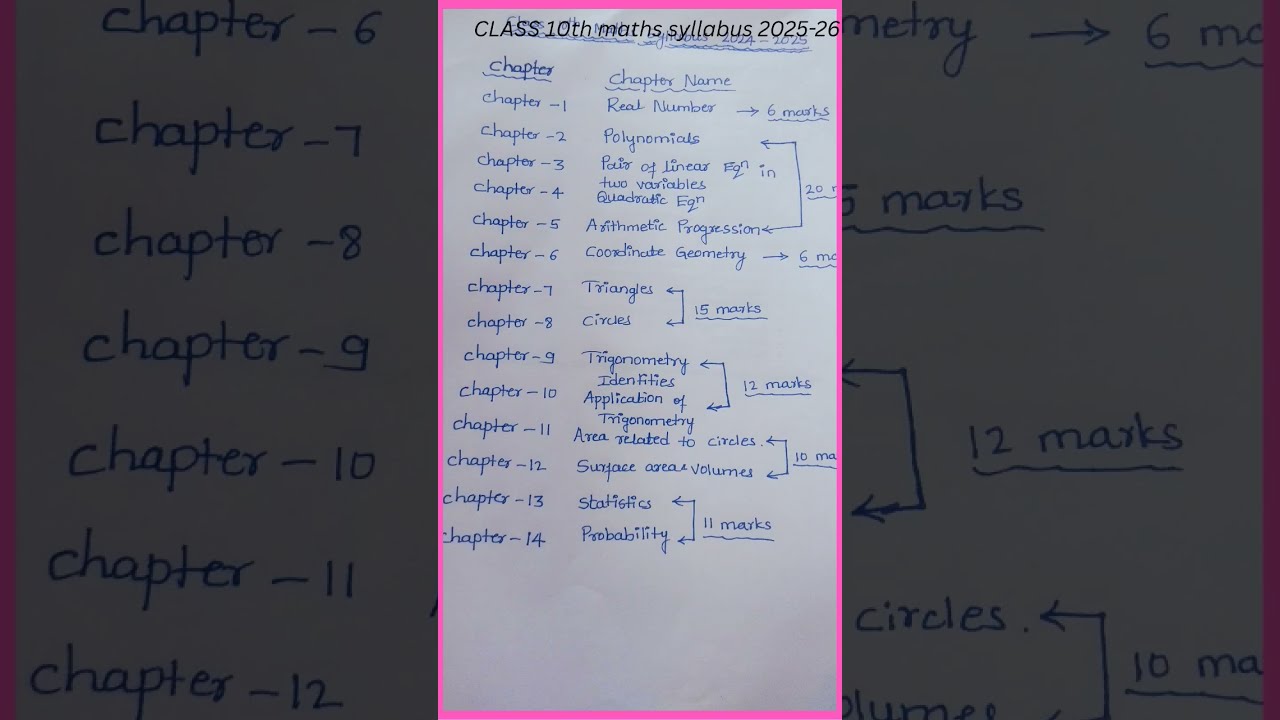 CLASS 10th maths syllabus 2025-26
Chapter Chapter Name
Chapter -1 Real Number → 6 marks
Chapter -2 Polynomials
Chapter -3 Pair of linear Eqn in
two variables
Chapter -4 Quadratic Eqn
20
Chapter -5 Arithmetic Progression
Chapter -6 Coordinate Geometry → 6 ma
Chapter -7 Triangles
15 marks
Chapter -8 Circles
Chapter -9 Trigonometry
Identities
12 marks
Chapter -10 Application of
Trigonometry
Chapter -11 Area related to circles.
10 ma
Chapter -12 Surface area & volumes
Chapter -13 Statistics
11 marks
Chapter -14 Probability
chapter - 6
chapter -7
chapter -8
chapter -9
chapter -10
chapter -11
chapter -12
metry → 6 ma
5 marks
12 marks
circles.
10 ma
olumes